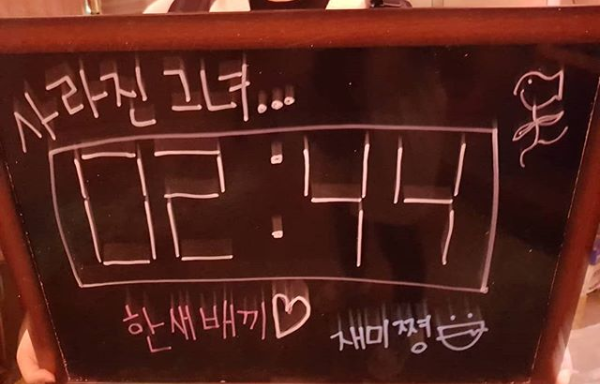 사라진 그녀...
02:44
한새배끼♡
재미쪙